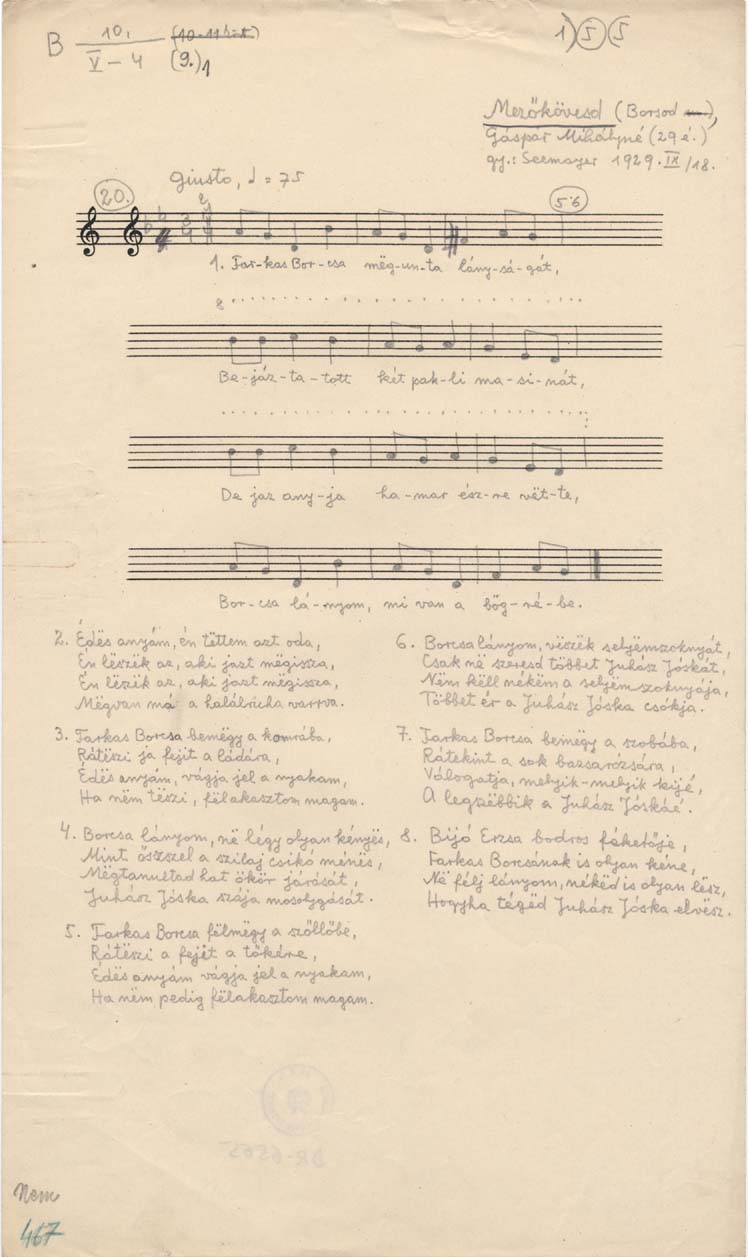 B 10, (10-11 )
V - 4 (9.)1
1) 5 (5
Mezőkövesd (Borsod m.),
Gáspár Mihályné (29 é.)
gy.: Seemayer 1929. IX/18.
Giusto, = 75
20.
56
1. Far-kas Bor-csa mëg-un-ta lány-sá-gát,
8
Be-jáz-ta-tott két pak-li ma-si-nát,
De jaz any-ja ha-mar ész-re vët-te,
Bor-csa lá-nyom, mi van a bög-ré-be.
2. Édës anyám, én tëttem azt oda,
Én lëszëk az, aki jazt mëgissza,
Én lëszëk az, aki jazt mëgissza,
Mëgvan má a halálrúcha varrva.
3. Farkas Borcsa bemëgy a komrába,
Rátëszi ja fejit a ládára,
Édës anyám, vágja jel a nyakam,
Ha nëm tëszi, fëlakasztom magam.
4. Borcsa lányom, në légy olyan kényës,
Mint őszszel a szilaj csikó ménës,
Mëgtanultad hat ökör járását,
Juhász Jóska szája mosolygását.
5. Farkas Borcsa fëlmëgy a szöllőbe,
Rátëszi a fejét a tőkére,
Édës anyám vágja jel a nyakam,
Ha nëm pedig fëlakasztom magam.
6. Borcsa lányom, vëszëk selyëmszoknyát,
Csak në szeresd többet Juhász Jóskát,
Nëm këll nékëm a selyëm szoknyája,
Többet ér a Juhász Jóska csókja.
7. Farkas Borcsa bemëgy a szobába,
Rátekint a sok bazsarózsára,
Válogatja, melyik-melyik kijé,
A legszëbbik a Juhász Jóskáé.
8. Bijó Erzsa bodros fékëtője,
Farkas Borcsának is olyan kéne,
Në félj lányom, nékëd is olyan lësz,
Hogyha tégëd Juhász Jóska elvësz.
Nem
467